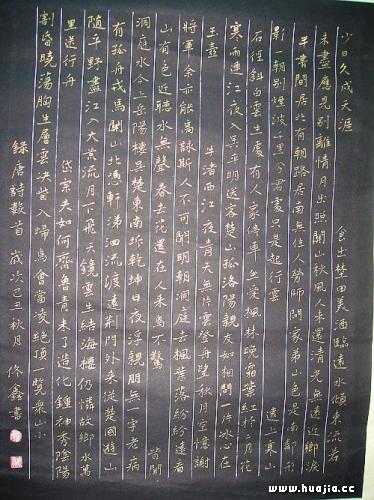 少日久成天涯 出楚田美酒臨遠水傾東流若
未盡應見別離情月出照關山秋風人未還清光無遠近鄉淚
半書間居北有朝路居南無住人勞師問家弟山色是南鄰形
影一朝別煙波千里分君看只是起行雲 遠上寒山
石徑斜白雲生處有人家停車坐愛楓林晚霜葉紅於二月花
寒雨連江夜入吳平明送客楚山孤洛陽親友如相問一片冰心在
玉壺 牛渚西江夜青天無片雲登舟望秋月空憶謝
將軍余亦能高詠斯人不可聞明朝洞庭去楓葉落紛紛遠看
山有色近聽水無聲春去花還在人來鳥不驚 昔聞
洞庭水今上岳陽樓吳楚東南坼乾坤日夜浮親朋無一字老病
有孤舟戎馬關山北憑軒涕泗流渡遠荊門外來從楚國遊山
隨平野盡江入大荒流月下飛天鏡雲生結海樓仍憐故鄉水萬
里送行舟 岱宗夫如何齊魯青未了造化鍾神秀陰陽
割昏曉蕩胸生層雲決眥入歸鳥會當凌絕頂一覽眾山小
錄唐詩數首 歲次己丑秋月 修鑫書
www.huajia.cc